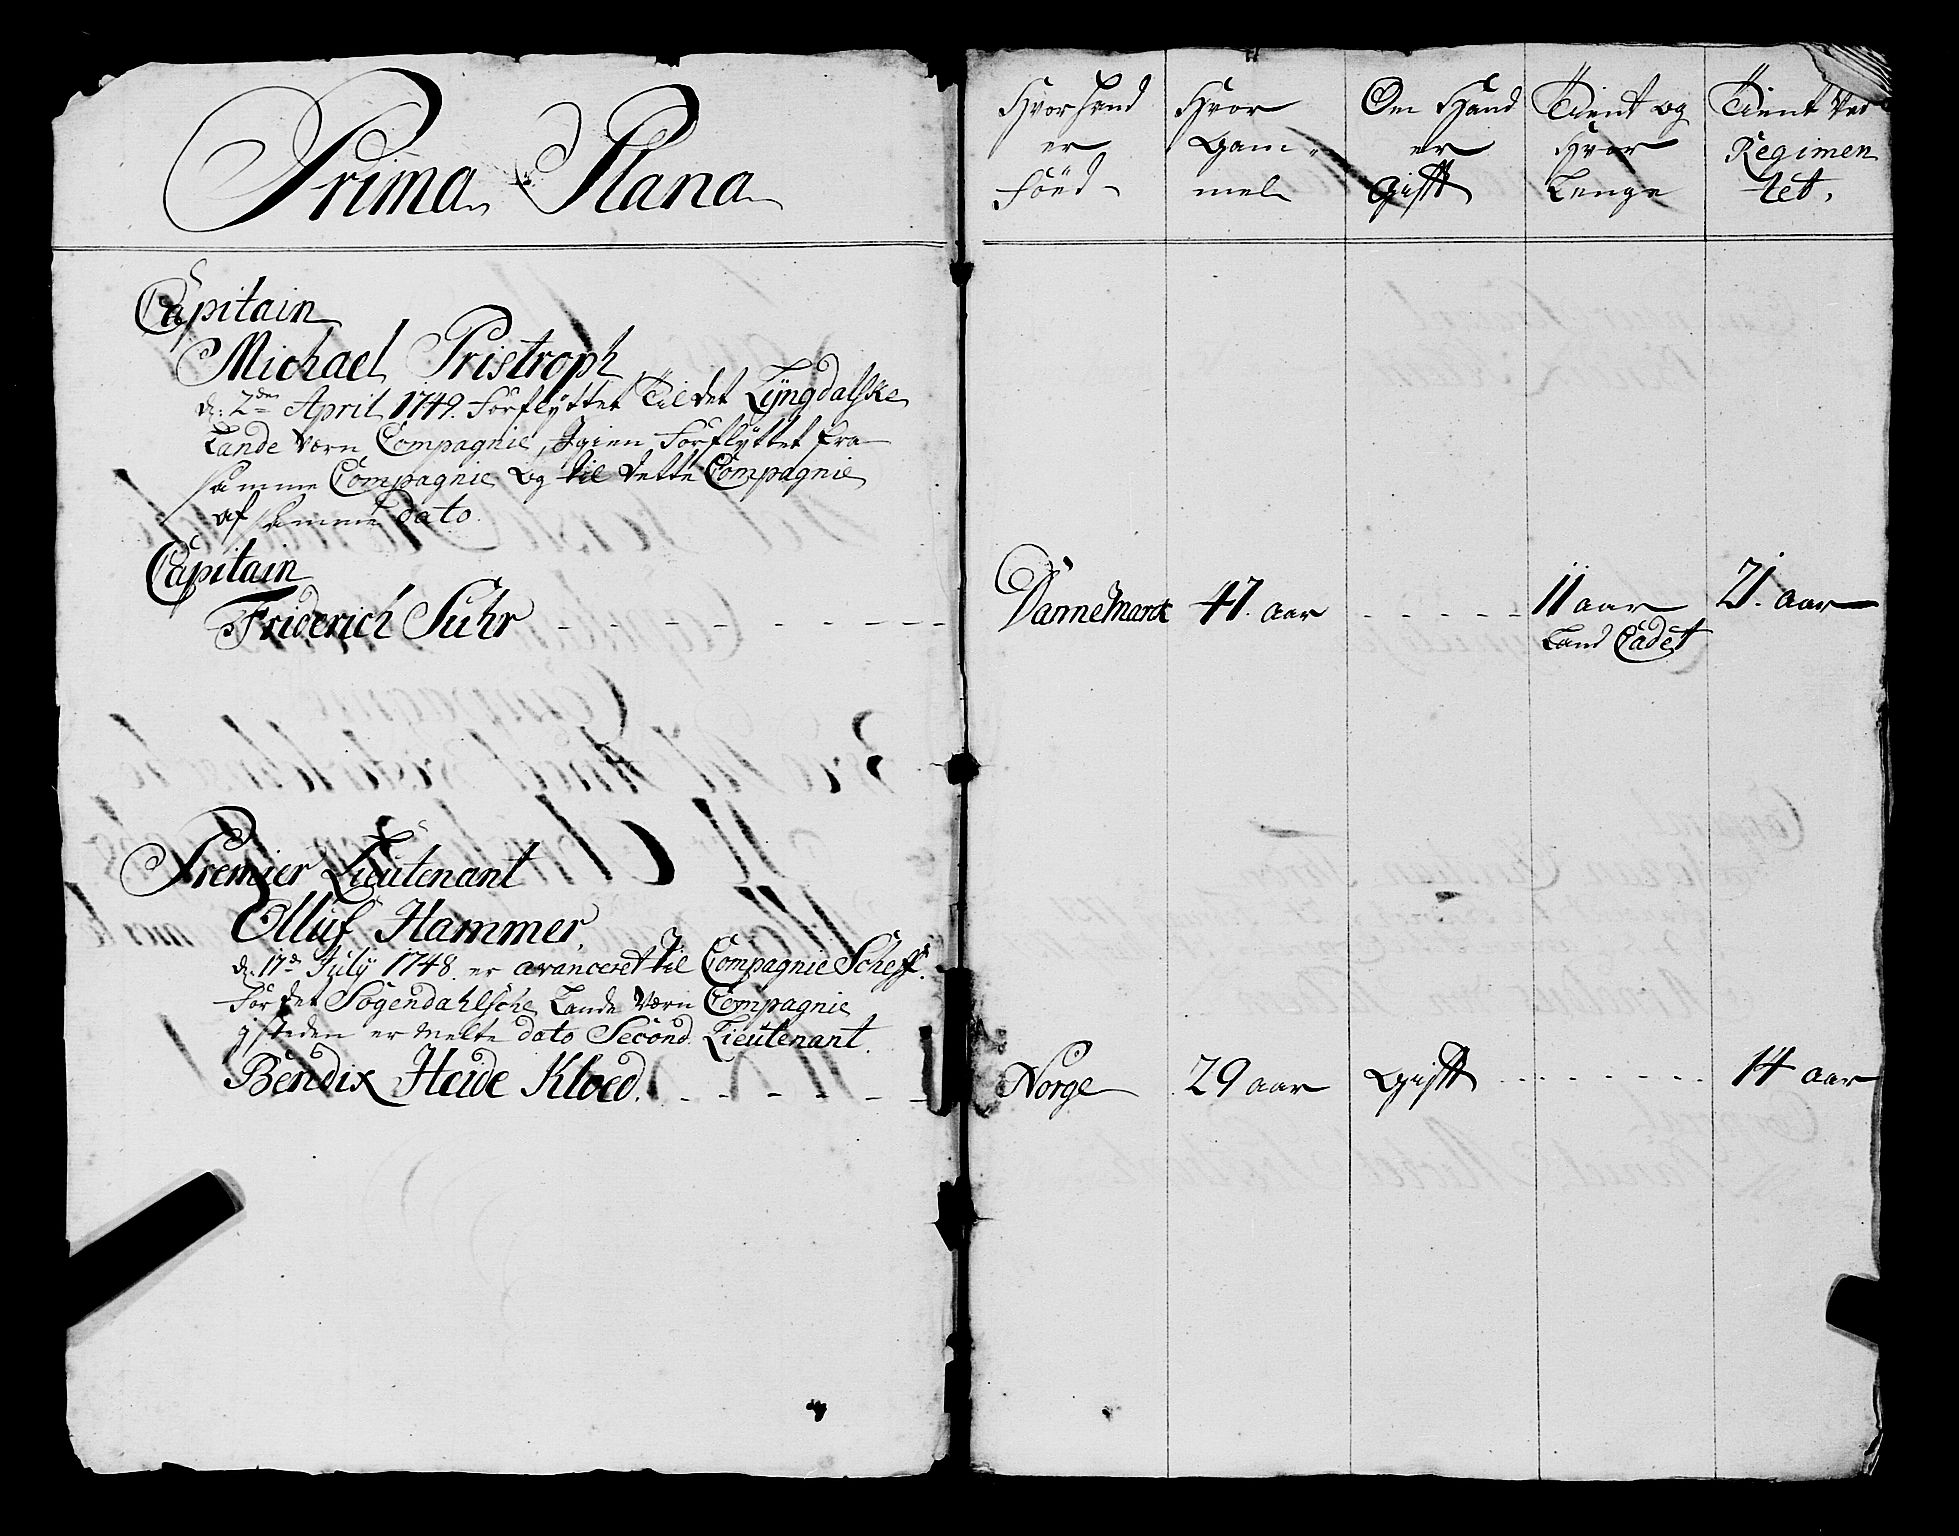 Prima Plana
Capitain
Michael Pristroph
d: 2den April 1749. Forflÿttet til det Lÿngdalske
Lande Værn Compagnie, Igien Forflÿttet fra
samme Compagnie og til dette Compagnie
af samme dato.
Capitain
Friderich Suhr
Premier Lieutenant
Olluf Hammer,
d: 17de Julÿ 1748. er avanceret til Compagnie Scheff.
For det Sogendahlsche Lande Værn Compagnie
J steden er melte dato Second Lieutenant.
Bendix Heide Kloed.
Hvor Hand
er
Föed
Hvor
Gam-
mel
Om Hand
er
Gifft
Tient og
Hvor
Lenge
Tient Ved
Regimen
tet.
Dannemarck 47. aar 11 aar 21. aar
Land Cadet
Norge 29 aar Gifft 14 aar